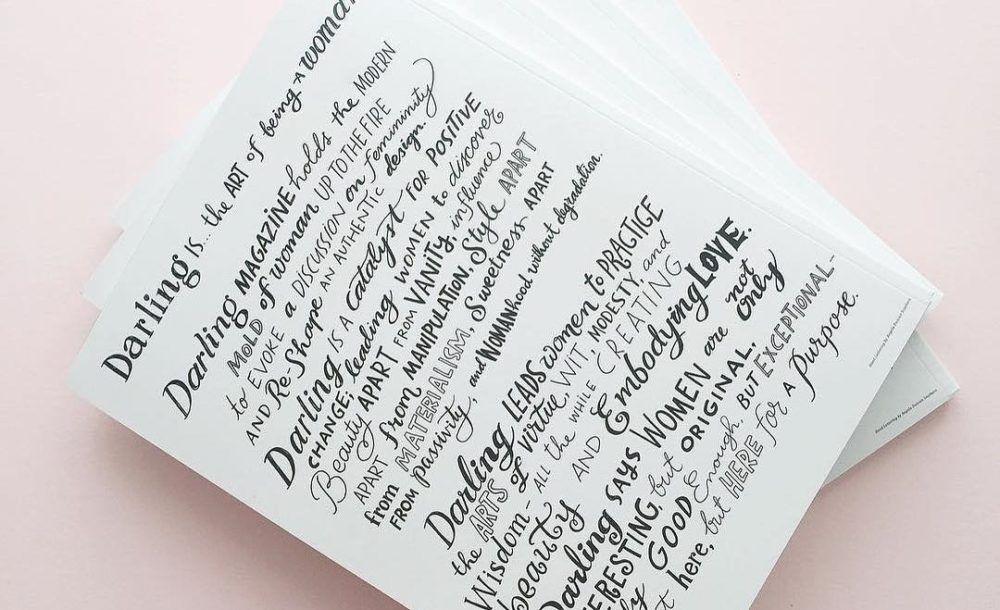 Darling IS... the ART of being A woma
Darling MAGAZINE holds the MODERN
MOLD of woman UP TO THE FIRE
to EVOKE a DISCUSSION on femininity
AND Re-Shape AN AUTHENTIC design.
Darling IS A Catalyst FOR POSITIVE
CHANGE, leading WOMEN to discover
Beauty APART FROM VANITY, influence
APART from MANIPULATION, Style APART
from MATERIALISM, Sweetness APART
FROM passivity, and WOMANHOOD without degradation.
Darling LEADS women to PRACTICE
the ARTS of Virtue, WIT, MODESTY, and
Wisdom - ALL the WHILE CREATING
beauty AND Embodying LOVE.
Darling says WOMEN are not only
TERESTING, but ORIGINAL,
ly GOOD Enough, but EXCEPTIONAL-
t here, but HERE for a Purpose.
Hand Lettering by Angela